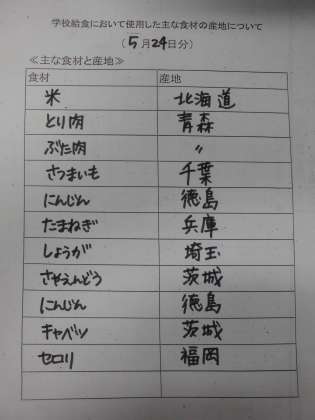 学校給食において使用した主な食材の産地について
(5月24日分)
≪主な食材と産地≫
食材 産地
米 北海道
とり肉 青森
ぶた肉 〃
さつまいも 千葉
にんじん 徳島
たまねぎ 兵庫
しょうが 埼玉
さやえんどう 茨城
にんじん 徳島
キャベツ 茨城
セロリ 福岡